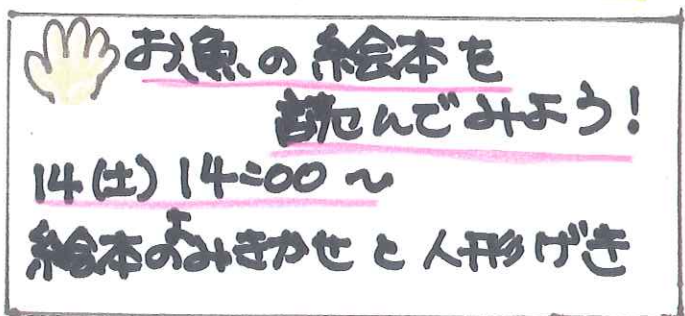 お魚の絵本を
読んでみよう!
14(土) 14:00~
絵本のよみきかせと人形げき